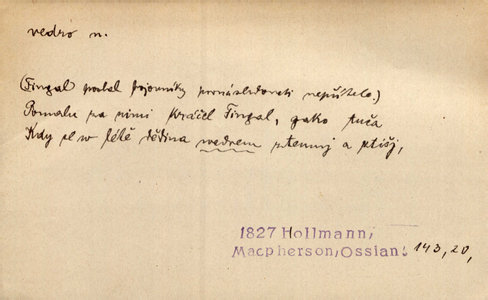 vedro n.
(Fingal poslal bojovníky pronásledovati nepřítele.)
Pomalu za nimi kráčel Fingal, gako tuča
Kdy se w létě dědina wedrem ztemnj a ztišj,
1827 Hollmann,
Macpherson, Ossian. 143, 20,